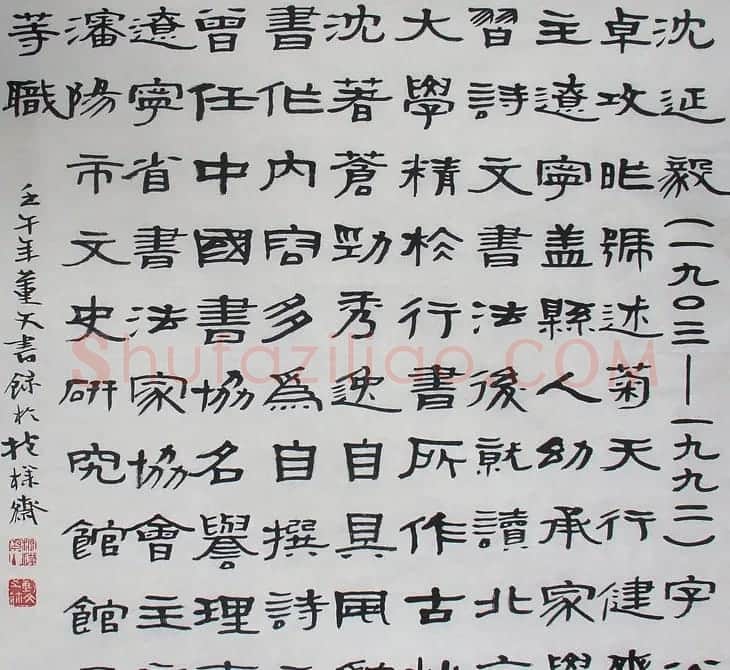 沈延毅(一九〇三—一九九二)字
卓攻昨號述菊天行健
主遼寧盖縣人幼承家學
習詩文書法後就讀北
大學精於行書所作古
沈著蒼勁秀逸自具風
書作內容多為自撰詩
曾任中國書協名譽理
遼寧省書法家協會主
瀋陽市文史研究館館
等職
壬午年董文書錄於抱樸齋
Shufaziliao.COM